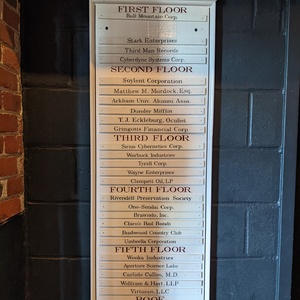 FIRST FLOOR
Bull Mountain Corp.
Stark Enterprises
Third Man Records
Cyberdyne Systems Corp.
SECOND FLOOR
Soylent Corporation
Matthew M. Murdock, Esq.
Arkham Univ. Alumni Assn.
Dunder Mifflin
T.J. Eckleburg, Oculist
Gringotts Financial Corp.
THIRD FLOOR
Sirius Cybernetics Corp.
Warbuck Industries
Tyrell Corp.
Wayne Enterprises
Clampett Oil, LP
FOURTH FLOOR
Rivendell Preservation Society
Ono-Sendai Corp.
Brawndo, Inc.
Charo's Bail Bonds
Bushwood Country Club
Umbrella Corporation
FIFTH FLOOR
Wonka Industries
Aperture Science Labs
Carlisle Cullen, M.D.
Wolfram & Hart, LLP
Virtucon, LLC
ROOF